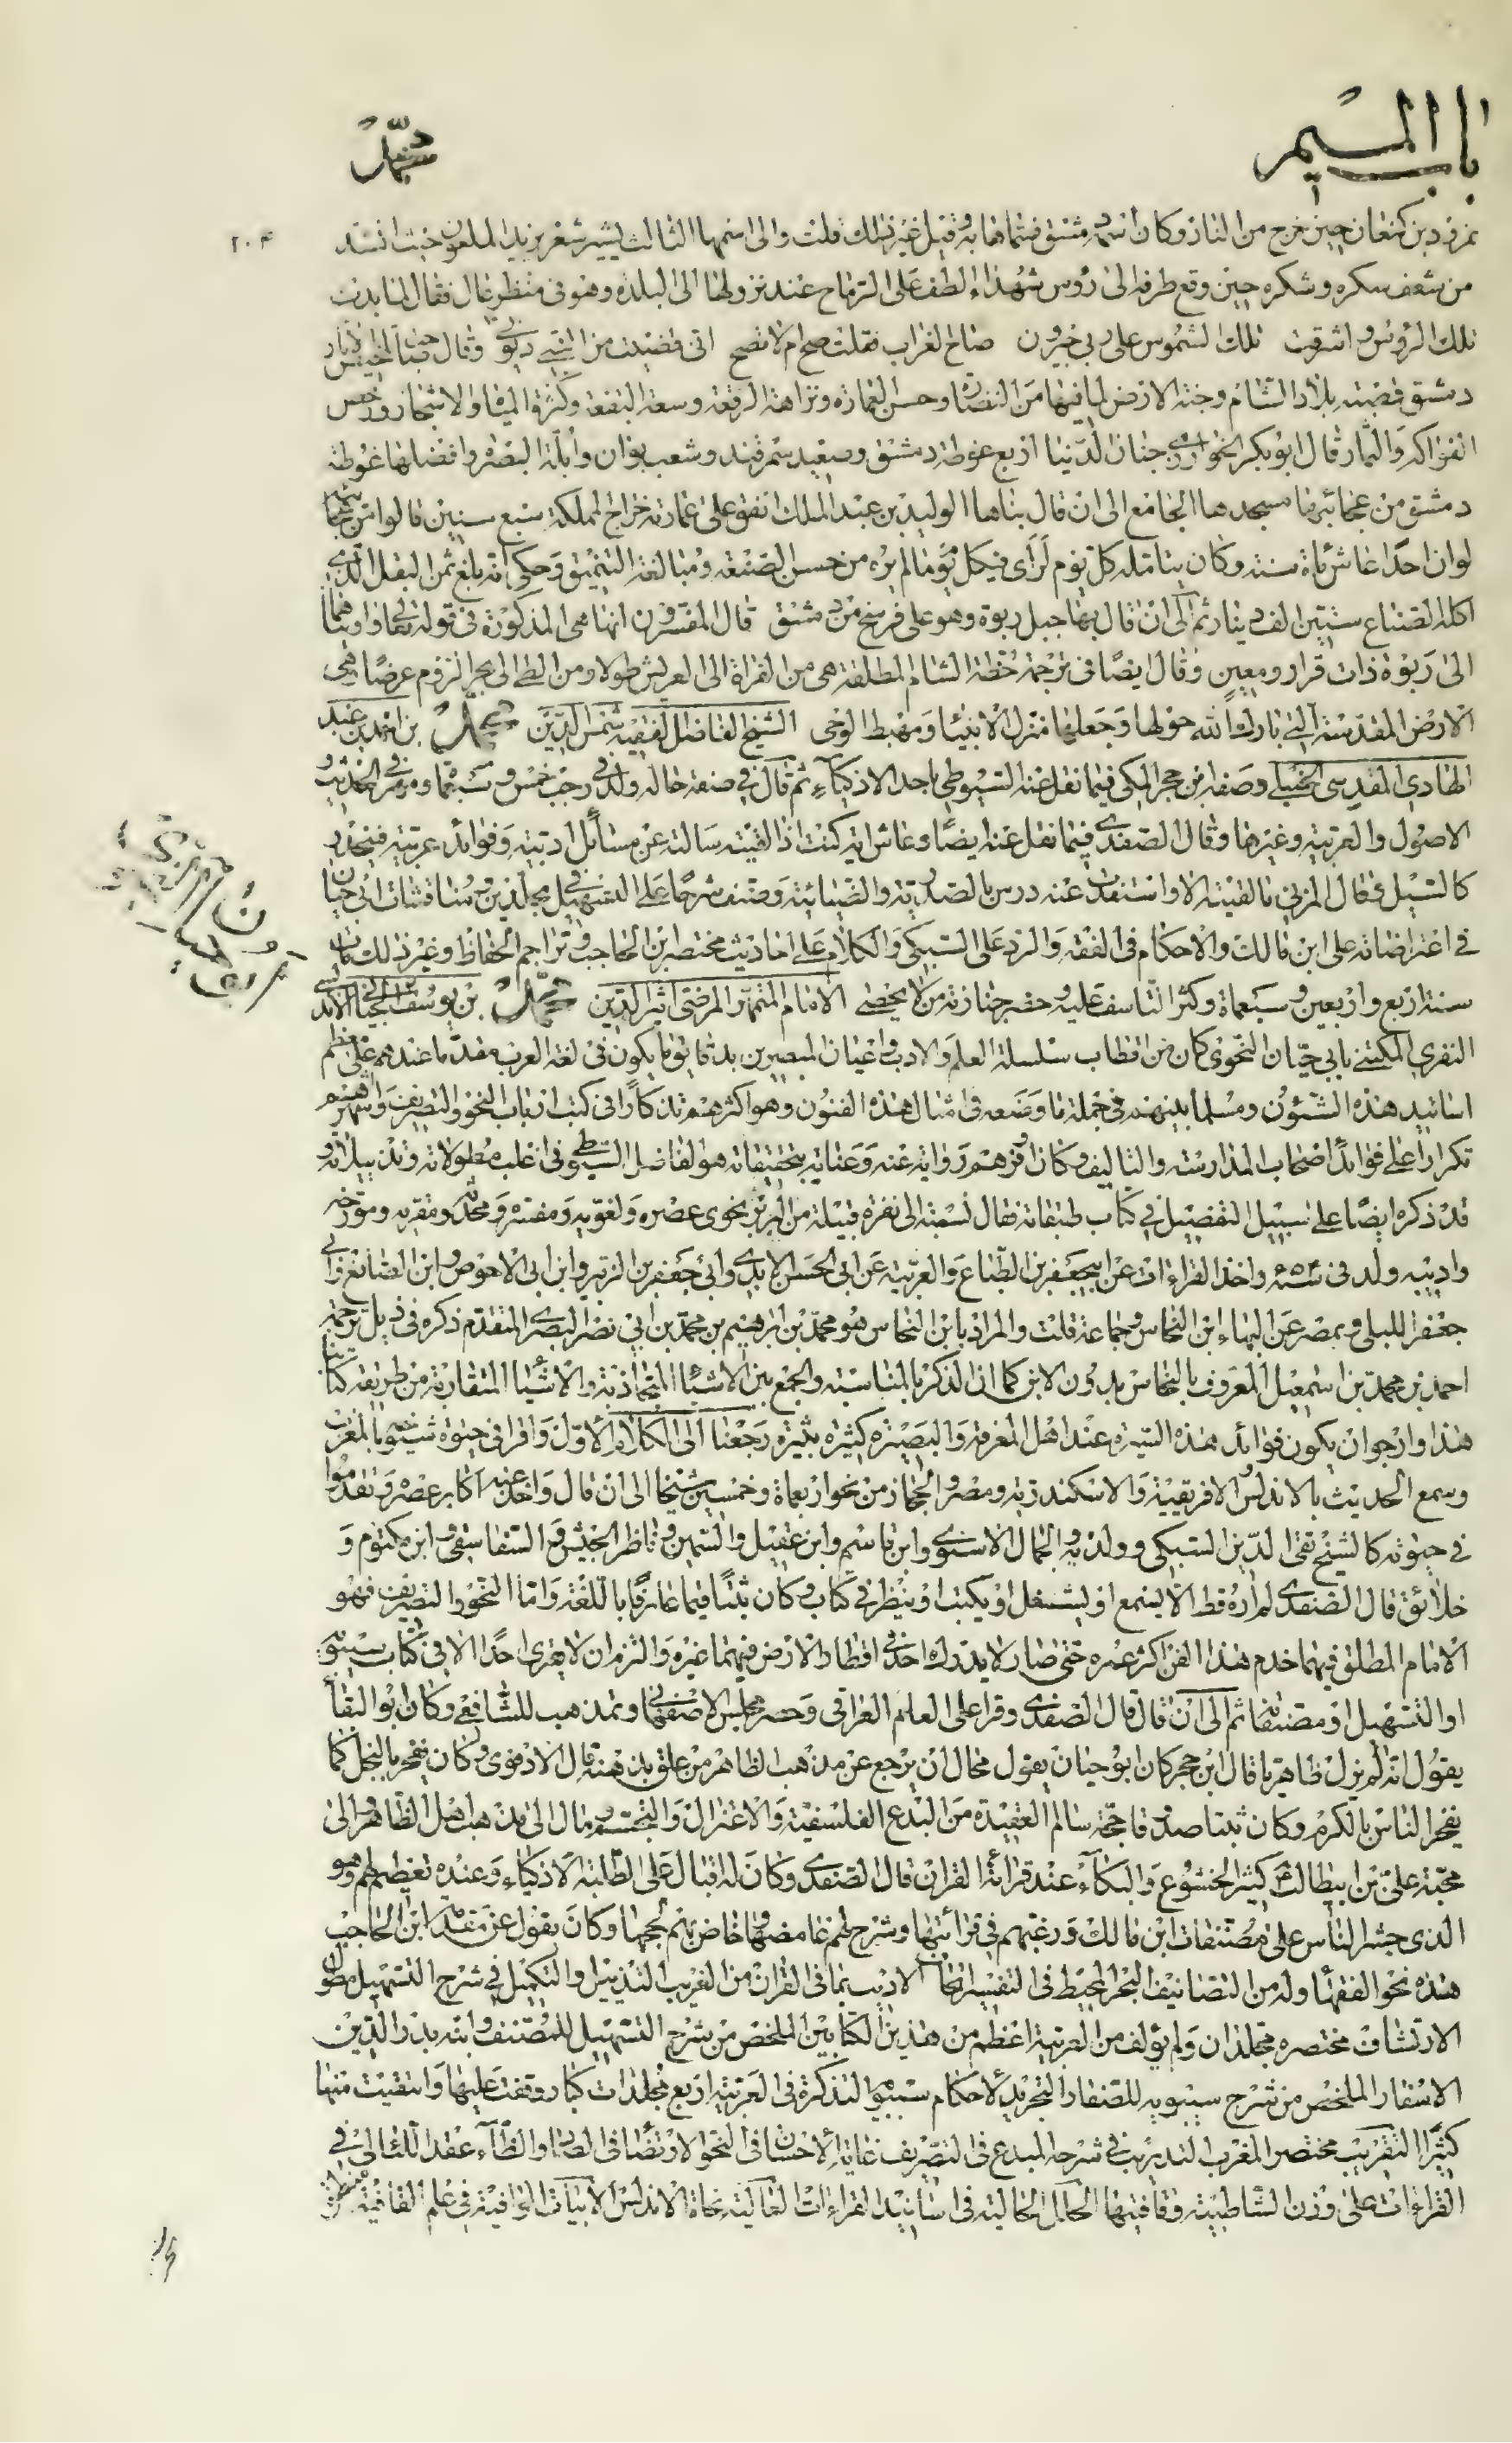 باب الميم
محمد
٢٠۴
نمرود بن كنعان حين خرج من النار وكان اسمه دمشق فسماها به وقيل غير ذلك قلت والى اسمها الثالث يشير شعر يزيد الملعون حيث انشد
من شعف سكره وشكره حين وقع طرفه الى رؤس شهداء الطف على الرماح عند نزولها الى البلدة وهو فى منظر عال فقال لما بدت
تلك الرؤس واشرقت تلك الشموس على ربى جيرون صاح الغراب فقلت صح ام لا تصح انى قضيت من النبى ديونى وقال صاحب تلخيص الآثار
دمشق قصبة بلاد الشام وجنة الارض لما فيها من النضارة وحسن العمارة ونزاهة الرقعة وسعة البقعة وكثرة المياه والاشجار ورخص
الفواكه والثمار قال ابو بكر الخوارزمى جنان الدنيا اربع غوطة دمشق وصغد سمرقند وشعب بوان وابلة البصرة وافضلها غوطة
دمشق من عجائبها مسجدها الجامع الى ان قال بناها الوليد بن عبد الملك انفق على عمارته خراج المملكة سبع سنين قالوا من عجائبها
لو ان احدا عاش مأة سنة وكان يتامله كل يوم لرأى فى كل يوم ما لم يره من حسن الصنعة ومبالغة التنميق وحكى انه بلغ ثمن البقل الذى
اكله الصناع ستين الف دينار ثم الى ان قال بها جبل ربوة وهو على فرسخ من دمشق قال المفسرون انها هى المذكورة فى قوله تعالى واويناهما
الى ربوة ذات قرار ومعين وقال ايضا فى ترجمة خطة الشام المطلقة هى من الفراة الى العريش طولا ومن الطى الى بحر الروم عرضا هى
الارض المقدسة التى بارك الله حولها وجعلها منزل الانبياء ومهبط الوحى الشيخ الفاضل الفقيه شمس الدين محمد بن احمد بن عبد
الهادى المقدسى الحنبلى وصفه ابن حجر المكى فيما نقل عنه السيوطى باحد الاذكياء ثم قال فى صفة حاله ولد فى رجب خمس وسبعمأة ومهر فى الحديث و
الاصول والعربية وغيرها وقال الصفدى فيما نقل عنه ايضا وعاش اية كنت اذا لقيته سالته عن مسائل ادبية وفوائد عربية فينحدر
كالسيل فى قال المزنى ما لقيته الا واستفدت عنه درس بالصدرية والضيائية وصنف شرحا على التسهيل فى مجلدين ومناقشات ابى حيان
فى اعتراضاته على ابن مالك والاحكام فى الفقه والرد على السبكى والكلام على احاديث مختصر ابن الحاجب وتراجم الحفاظ وغير ذلك مات
سنة اربع واربعين وسبعمأة وكثر التاسف عليه وحضر جنازته من لا يحصى الامام المتمهر المرضى اثير الدين محمد بن يوسف الجيانى الاندلسى
النفرى المكنى بابى حيان النحوى كان من اقطاب سلسلة العلم والادب واعيان المبصرين بدقائق ما يكون فى لغة العرب مقدما عندهم على معظم
اساتيد هذه الشئون ومسلما بينهم فى جملة ما وضعه فى امثال هذه الفنون وهو اكثرهم تذكارا فى كتب ارباب النحو والتصريف واشهرهم
تكرارا على فوائد اصحاب المدارسة والتاليف وكان اوفرهم رواية عنه وعناية بتحقيقاته هو الفاضل السيوطى فى اغلب مطولاته وتذييلاته و
قد ذكره ايضا على سبيل التفصيل فى كتاب طبقاته فقال نسبته الى نفزة قبيلة من البربر نحوى عصره ولغويه ومفسره ومحدثه ومقريه ومورخه
واديبه ولد فى سنة واخذ القراءات عن ابى جعفر بن الطباع والعربية عن ابى الحسن الابدى وابى جعفر بن الزبير وابن ابى الاحوص وابن الصائغ وابى
جعفر اللبلى وبمصر عن البهاء ابن النحاس وجماعة قلت والمراد بابن النحاس هو محمد بن ابرهيم بن محمد بن ابى نصر البصرى المتقدم ذكره فى ذيل ترجمة
احمد بن محمد بن اسمعيل المعروف بالنحاس بدون الابن كما ان الذكر بالمناسبة والجمع بين الاشياء المتجاذبة والاشياء المتقاربة من طريقة كتابنا
هذا وارجو ان يكون فوائد هذه السيرة عند اهل المعرفة والبصيرة كثيرة بثيرة رجعنا الى الكلام الاول واقرا فى حيوة شيوخه بالمغرب
وسمع الحديث بالاندلس والافريقية والاسكندرية ومصر والحجاز من نحو اربعمأة وخمسين شيخا الى ان قال واخذ عنه اكابر عصره وتقدموا
فى حيوته كالشيخ تقى الدين السبكى وولديه والجمال الاسنوى وابن قاسم وابن عقيل والسمين وناظر الجيش والسفاسقى وابن مكتوم و
خلائق قال الصفدى لم أره قط الا يسمع او يشتغل او يكتب او ينظر فى كتاب وكان ثبتا فيما عارفا باللغة واما النحو والتصريف فهو
الامام المطلق فيهما خدم هذا الفن اكثر عمره حتى صار لا يدركه احد فى اقطار الارض فيهما غيره والتزم ان لا يقرى احدا الا فى كتاب سيبويه
او التسهيل او مصنفاته ثم الى ان قال قال الصفدى وقرا على العلم العراقى وحضر مجلس الاصفهانى وتمذهب للشافعى وكان ابو البقاء
يقول انه لم يزل ظاهريا قال ابن حجر كان ابو حيان يقول محال ان يرجع عن مذهب الظاهر من علق بذهنه قال الادفوى وكان يفخر بالبخل كما
يفخر الناس بالكرم وكان ثبتا صدوقا حجة سالم العقيدة من البدع الفلسفية والاعتزال والتجسيم ومال الى مذهب اهل الظاهر والى
محبة على بن ابيطالب كثير الخشوع والبكاء عند قرائة القران قال الصفدى وكان له اقبال على الطلبة الاذكياء وعنده تعظيم لهم وهو
الذى جسر الناس على مصنفات ابن مالك ورغبهم فى قرائتها وشرح لهم غامضها وخاض بهم لججها وكان يقول عن مقدمة ابن الحاجب
هذه نحو الفقهاء وله من التصانيف البحر المحيط فى التفسير اتحاف الاديب بما فى القران من الغريب التذييل والتكميل فى شرح التسهيل مطول
الارتشاف مختصره مجلدان ولم يؤلف من العربية اعظم من هذين الكتابين الملخص من شرح التسهيل للمصنف وابنه بدر الدين
الاسفار الملخص من شرح سيبويه للصفار التجريد لاحكام سيبويه التذكرة فى العربية اربع مجلدات كبار وقفت عليها وانتقيت منها
كثيرا التقريب مختصر المغرب التدريب فى شرحه المبدع فى التصريف غاية الاحسان فى النحو الارتضا فى الضاد والظاء عقد اللئالى فى
القراءات على وزن الشاطبية وقافيتها الحلل الحالية فى اسانيد القراءات العالية نحاة الاندلس الابيات الوافية فى علم القافية